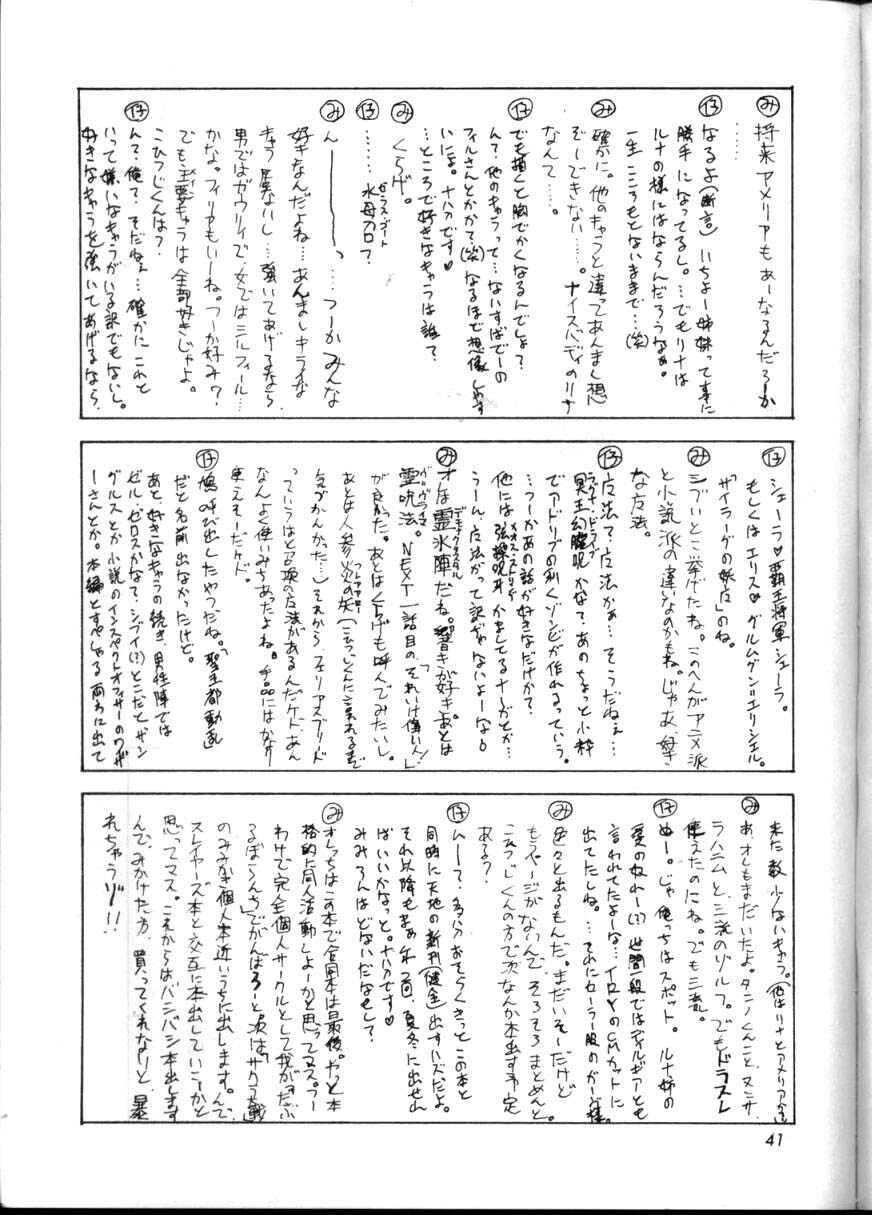 み 将来アメリアもあーなるんだろーか
……
仔 なるよ(断言)いちおー姉妹って事に
勝手になってるし。…でもリナは
ルナの様にはならんだろうなぁ。
一生こころもとないままで…(笑)
み 確かに。他のキャラと違ってあんまし想
ぞーできない……。ナイスバディのリナ
なんて……。
仔 でも描くと胸でかくなるんでしょ?
ん?他のキャラって…ないすばでーの
フィルさんとかかて?(笑)なるほど想像しやす
いによ。ナハハです♥
…ところで好きなキャラは誰?
み くらげ。
仔 ……水母召ロ?
み ん————っ…つーかみんな
好きなんだよね…あんましキライな
きゃら居ないし…強いてあげるなら
男ではガウリイで…女ではミルフィール…
かな。フィリアもいーね。つーか好み?
でも、主要キャラは全部好きじゃよ。
こひつじくんは?
仔 ん?俺?そだねぇ…確かにこれと
いって嫌いなキャラがいる訳でもないし。
好きなキャラを強いてあげるなら、
仔 シェーラ♥覇王将軍シェーラ。
もしくはエリス♥グルムグン=エリシエル。
「ザイラーグの妖魔」のね。
み シブいとこ挙げたね。このへんがアニメ派
と小説派の違いなのかもね。じゃあ、好き
な魔法。
仔 魔法?魔法かぁ…そうだねぇ…
冥王幻朧呪かな?あのちょっと小粋
でアドリブの利くゾンビが作れるっていう。
…つーかあの話が好きなだけか?
他には
うーん、魔法がって訳じゃないよーな。
み オレは霊氷陣だね。響きが好き。あとは
霊呪法。NEXT一話目の、「それいけ偉い人!」
が良かった。あとはくらげも呼んでみたいし。
あとは人参火の矢(こひつじくんに言われるまで
気づかんかった…)それから、フェリアスブリード
っていうはと召喚の魔法があるんだケド、あん
なんよく使いみちあったよね。手品にはかなり
使えそーだケド。
仔 鳩呼び出したやつだね。「聖王都動乱」
だと名前出なかったけど。
あと、好きなキャラの続き、男性陣では
ゼル、ゼロスかな?シブイ(?)とこだとザン
グルスとか小説のインスペクトオフィサーのワイザ
ーさんとか。本編とすぺしゃる両方に出て
来た数少ないキャラ。(他はリナとアメリア
み あ、オレもまだいたよ。タニノくんこと、ヌンサ、
ラハニムと、三流のゾルフ。でもドラスレ
使えたのにね。でも三流。
仔 ぬー。じゃ俺っちはスポット。ルナ姉の
愛の奴れー(?)世間一般ではディルギアとも
言われてたよーな…イロイロのCMカットに
出てたしね。…それにセーラー服のガーヴ様。
み 色々と出るもんだ。まだいそーだけど
もうページがないんでそろそろまとめんと。
こひつじくんの方で次なんか本出す予定
ある?
仔 ムーて、多分おそらくきっとこの本と
同時に天地の新刊(健全)出すハズだよ。
それ以降もまぁ、年2回、夏冬に出せれ
ばいいかなっと。ナハハです♥
みみろんはどないだなもして?
み オレっちはこの本で合同本は最後。やっと本
格的に同人活動しよーかと思ってマス。つー
わけで完全個人サークルとして我が「だぶ
るぽこらんち」でがんばろーと。次は「サクラ大戦」
のみみろん個人本近いうちに出します。んで、
スレイヤーズ本と交互に本出していこーかと
思ってマス。これからはバシバシ本出します
んで、みかけた方、買ってくれないと、暴
れちゃうゾ!!
41